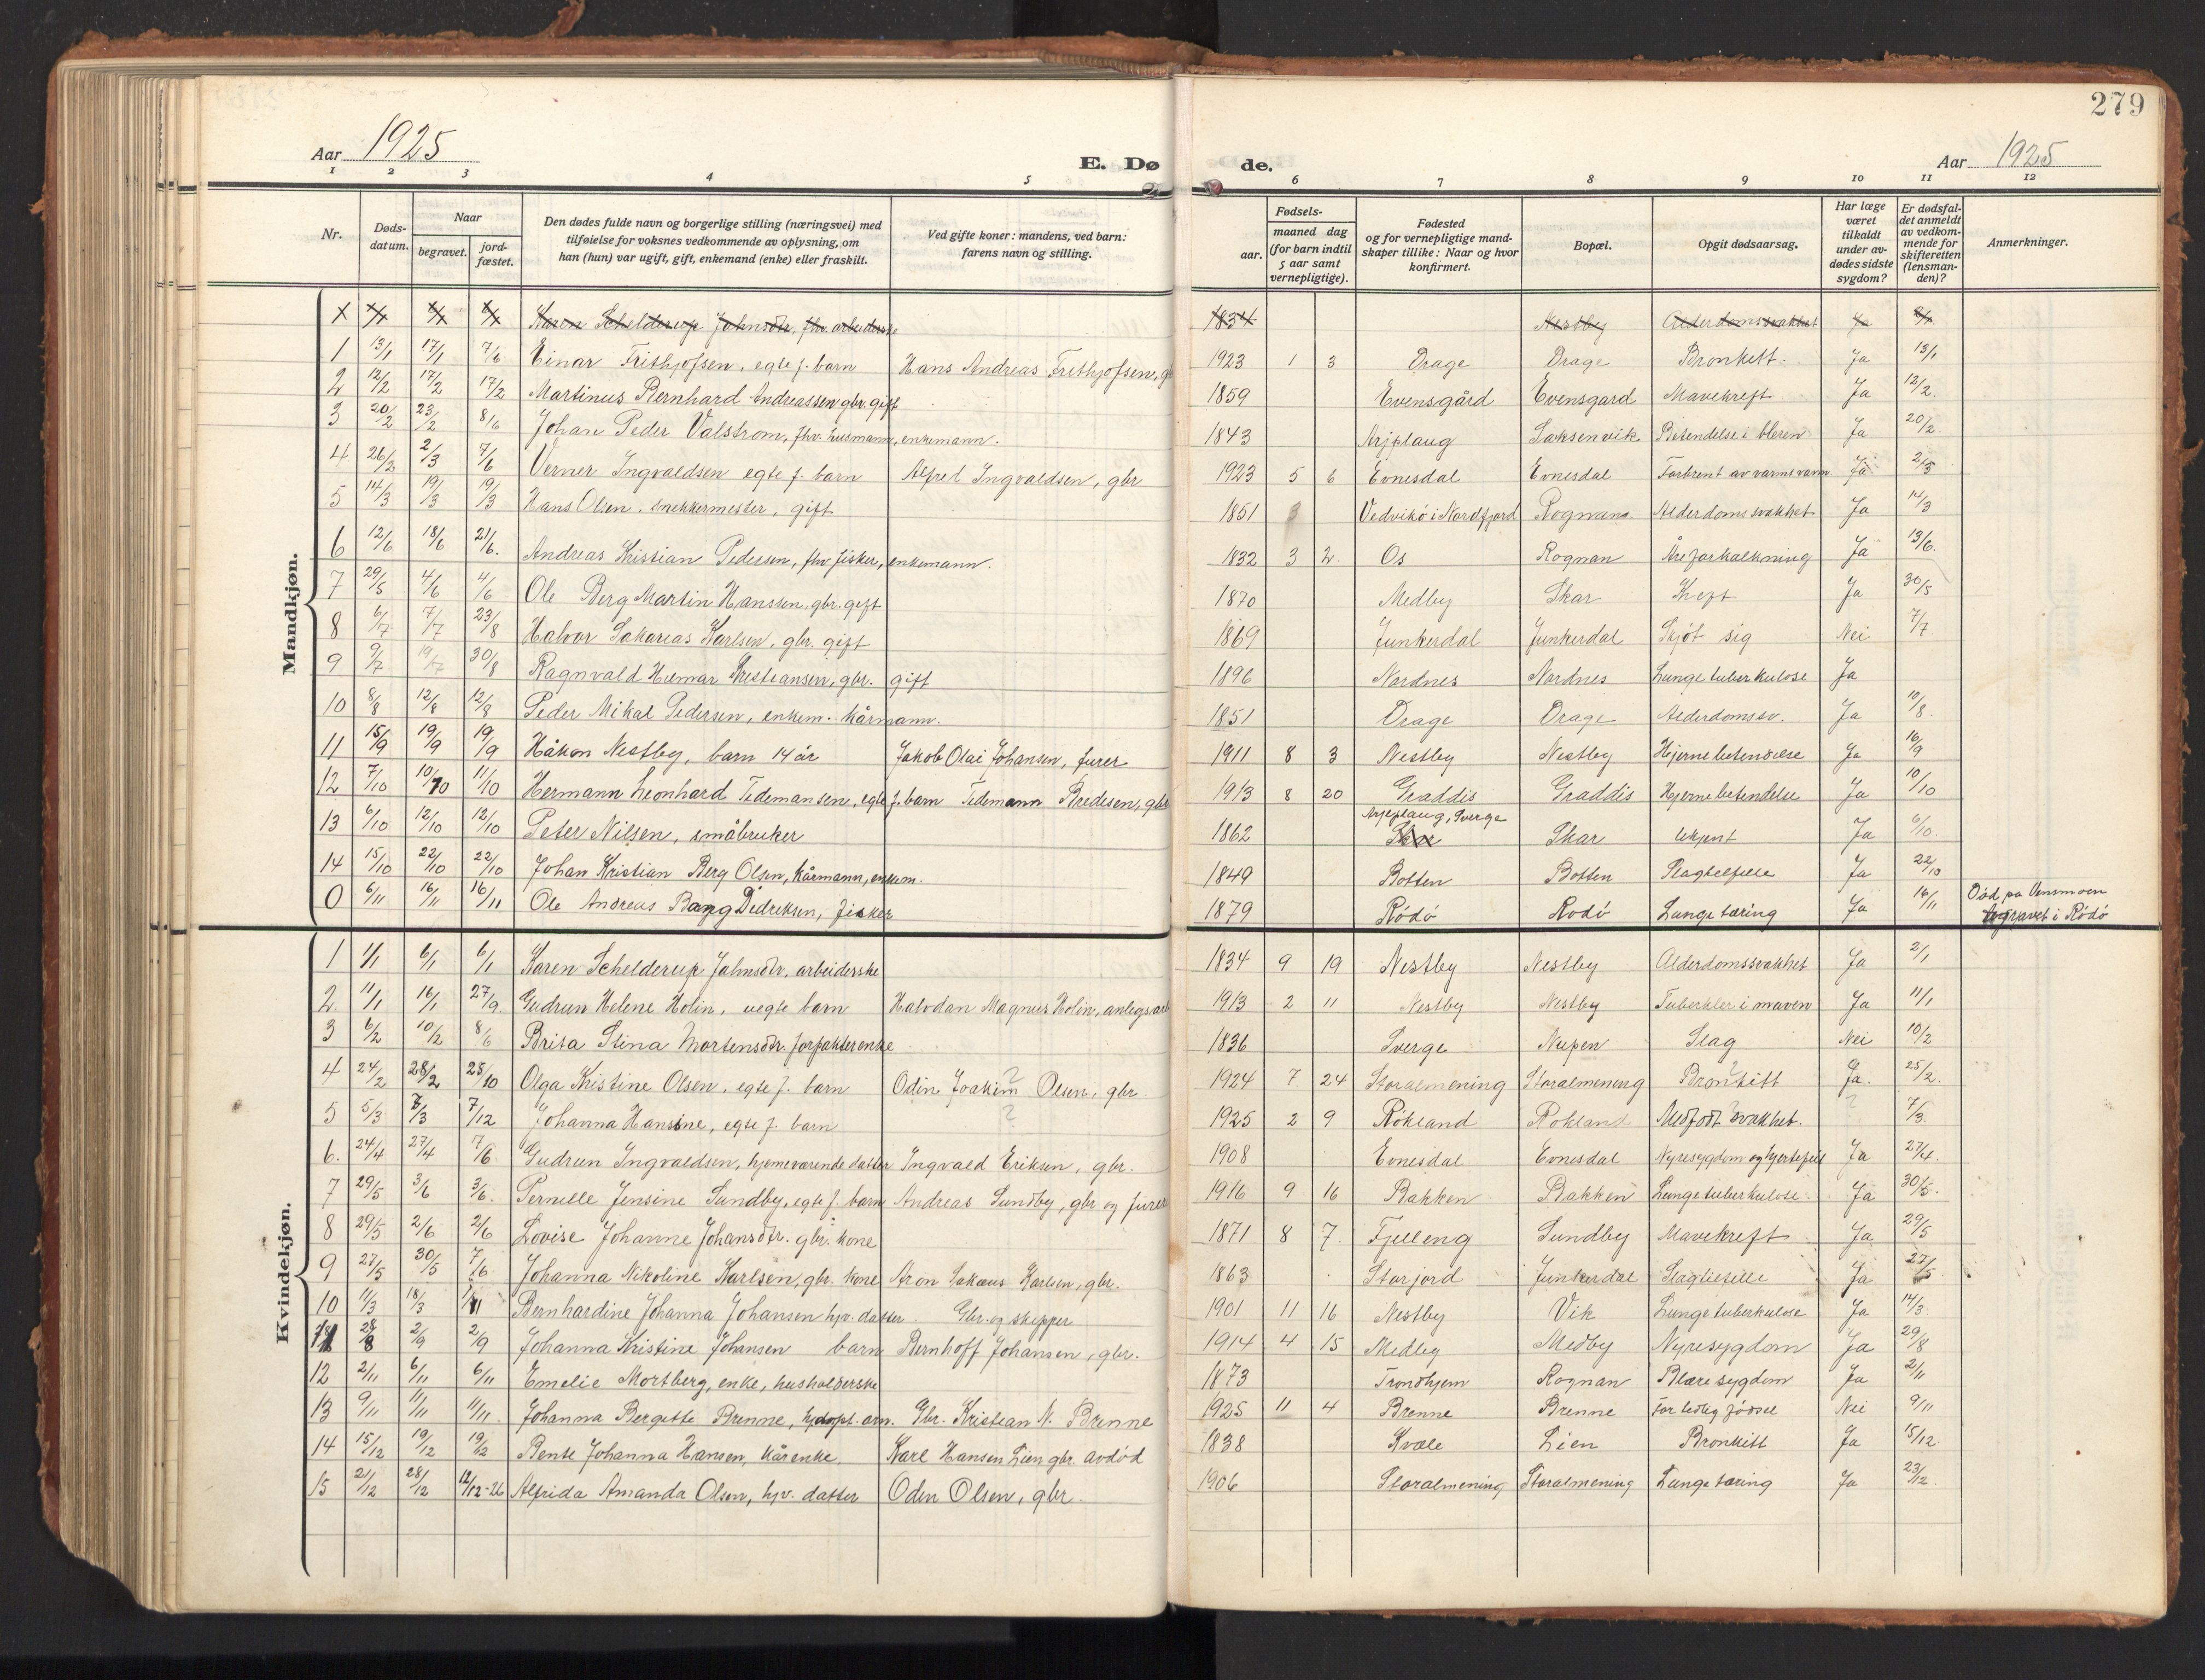 279
Aar 1925
E. Dø de.
Aar 1925
1 2 3 4 5 6 7 8 9 10 11 12
Nr. Døds-datum. Naar begravet. jord-fæstet. Den dødes fulde navn og borgerlige stilling (næringsvei) med tilføielse for voksnes vedkommende av oplysning, om han (hun) var ugift, gift, enkemand (enke) eller fraskilt. Ved gifte koner: mandens, ved barn: farens navn og stilling. Fødsels- aar. maaned dag (for barn indtil 5 aar samt vernepligtige). Fødested og for vernepligtige mand-skaper tillike: Naar og hvor konfirmert. Bopæl. Opgit dødsaarsag. Har læge været tilkaldt under av-dødes sidste sygdom? Er dødsfal-det anmeldt av vedkom-mende for skifteretten (lensman-den)? Anmerkninger.
Mandkjøn.
Karen Schelderup Jahnsdtr, fhv. arbeiderske 1834 Nestby Alderdomssvakhet Ja
1 13/1 17/1 7/6 Einar Frithjofsen, egte f. barn Hans Andreas Frithjofsen, 1923 1 3 Drage Drage Bronkitt. Ja 13/1
2 12/2 17/2 17/2 Martinus Bernhard Andreassen gbr. gift 1859 Evensgård Evensgard Mavekreft Ja 12/2
3 20/2 23/2 8/6 Johan Peder Valstrom, fhv. husmann, enkemann. 1843 Arjplaug Saksenvik Betendelse i bleren Ja 20/2
4 26/2 2/3 7/6 Verner Ingvaldsen egte f. barn Alfred Ingvaldsen, gbr 1923 5 6 Evnesdal Evnesdal Forbrent av varmt vann Ja 2/3
5 14/3 19/3 19/3 Hans Olsen, snekkermester, gift 1851 Vedvikø i Nordfjord Rognan Alderdomssvakhet Ja 14/3
6 12/6 18/6 21/6. Andreas Kristian Pedersen, fhv fisker, enkemann. 1832 3 2. Os Rognan Åreforkalkning Ja 13/6.
7 29/5 4/6 4/6 Ole Berg Martin Hanssen, gbr. gift 1870 Medby Skar Kreft Ja 30/5
8 6/7 7/7 23/8 Halvor Sakarias Karlsen, gbr. gift 1869 Junkerdal Junkerdal Skjøt sig Nei 7/7.
9 9/7 19/7 30/8 Ragnvald Hilmar Kristiansen, gbr. gift 1896 Nordnes Nordnes Lungetuberkulose Ja
10 8/8 12/8 12/8 Peder Mikal Pedersen, enkem. kårmann. 1851 Drage Drage Alderdomssv. Ja 10/8
11 15/9 19/9 19/9 Håkon Nestby, barn 14 år Jakob Olai Johansen, furer 1911 8 3 Nestby Nestby Hjernebetendelse Ja 16/9
12 7/10 10/10 11/10 Hermann Leonhard Tidemansene, egte f. barn Tidemann Bredesen, gbr 1913 8 20 Graddis Graddis Hjernebetendelse Ja 10/10
13 6/10 12/10 12/10 Peter Nilsen, småbruker 1862 Arjeplaug, Sverge Skar Skar ukjent Ja 6/10.
14 15/10 22/10 22/10 Johan Kristian Berg Olsen, kårmann, enkem. 1849 Botten Botten Slagtilfelle Ja 22/10
0 6/11 16/11 16/11 Ole Andreas Bang Didriksen, fisker 1879 Rödö Rodö Lungetæring Ja 16/11 Död pa Vensmoen begravet i Rödö
Kvindekjøn.
1 1/1 6/1 6/1 Karen Schelderup Jahnsdtr, arbeiderske 1834 9 19 Nestby Nestby Alderdomssvakhet Ja 2/1
2. 11/1 16/1 27/9. Gudrun Helene Holin, uegte barn Halvdan Magnus Holin, anlegsarb 1913 2 11 Nestby Nestby Tuberkler i maven Ja 11/1
3 6/2 10/2 8/6 Brita Stina Mortensdtr. forpakterenke 1836 Sverge Nupen Slag Nei 10/2
4 24/2 28/2 25/10 Olga Kristine Olsen, egte f. barn Odin Joakim Olsen, gbr. 1924 7 24 Storalmening Storalmening Bronkitt Ja. 25/2.
5 5/3 8/3 7/12 Johanna Hansine, egte f. barn ? 1925 2 9 Rokland Rokland Medfödt svakhet. ? 7/3
6. 24/4 27/4 7/6 Gudrun Ingvaldsen, hjemeværende datter Ingvald Eriksen, gbr. 1908 Evnesdal Evnesdal Nyresygdom og hjertefeil Ja 27/4.
7 29/5 3/6 3/6. Pernille Jensine Sundby, egte f. barn Andreas Sundby, gbr og furer 1916 9 16 Bakken Bakken Lungetuberkulose. Ja 30/5.
8 29/5 2/6 2/6 Lovise Johanne Johansdtr. gbr. kone 1871 8 7. Fjelleng Sundby Mavekreft Ja 29/5
9 27/5 30/5 7/6 Johanna Nikoline Karlsen, gbr. kone Aron Sakæus Karlsen, gbr. 1863 Storjord Junkerdal Slagtilfelle Ja 27/5
10 11/3 18/3 Bernhardine Johanna Johansen hjv. datter Gbr. og skipper 1901 11 16 Nestby Vik Lungetuberkulose Ja 14/3
11 28/8 2/9 2/9 Johanna Kristine Johansen barn Bernhoff Johansen, gbr. 1914 4 15 Medby Medby Nyresygdom Ja 29/8
12 2/11 6/11 6/11 Emelie Mortberg, enke, husholderske 1873 Trondhjem Rognan Blæresygdom Ja 2/11
13 9/11 11/11 11/11. Johanna Bergitte Brenne, Gbr. Kristian N. Brenne 1925 11 4 Brenne Brenne For tidlig födsel Nei 9/11
14 15/12 19/12 19/12 Bente Johanna Hansen, kårenke. Karl Hansen Lien gbr. avdöd 1838 Kvæle Lien Bronkitt Ja 15/12.
15 21/12 28/12 12/12-26 Alfrida Amanda Olsen, hjv. datter Odin Olsen, gbr. 1906 Storalmening Storalmening Lungetæring Ja 23/12.